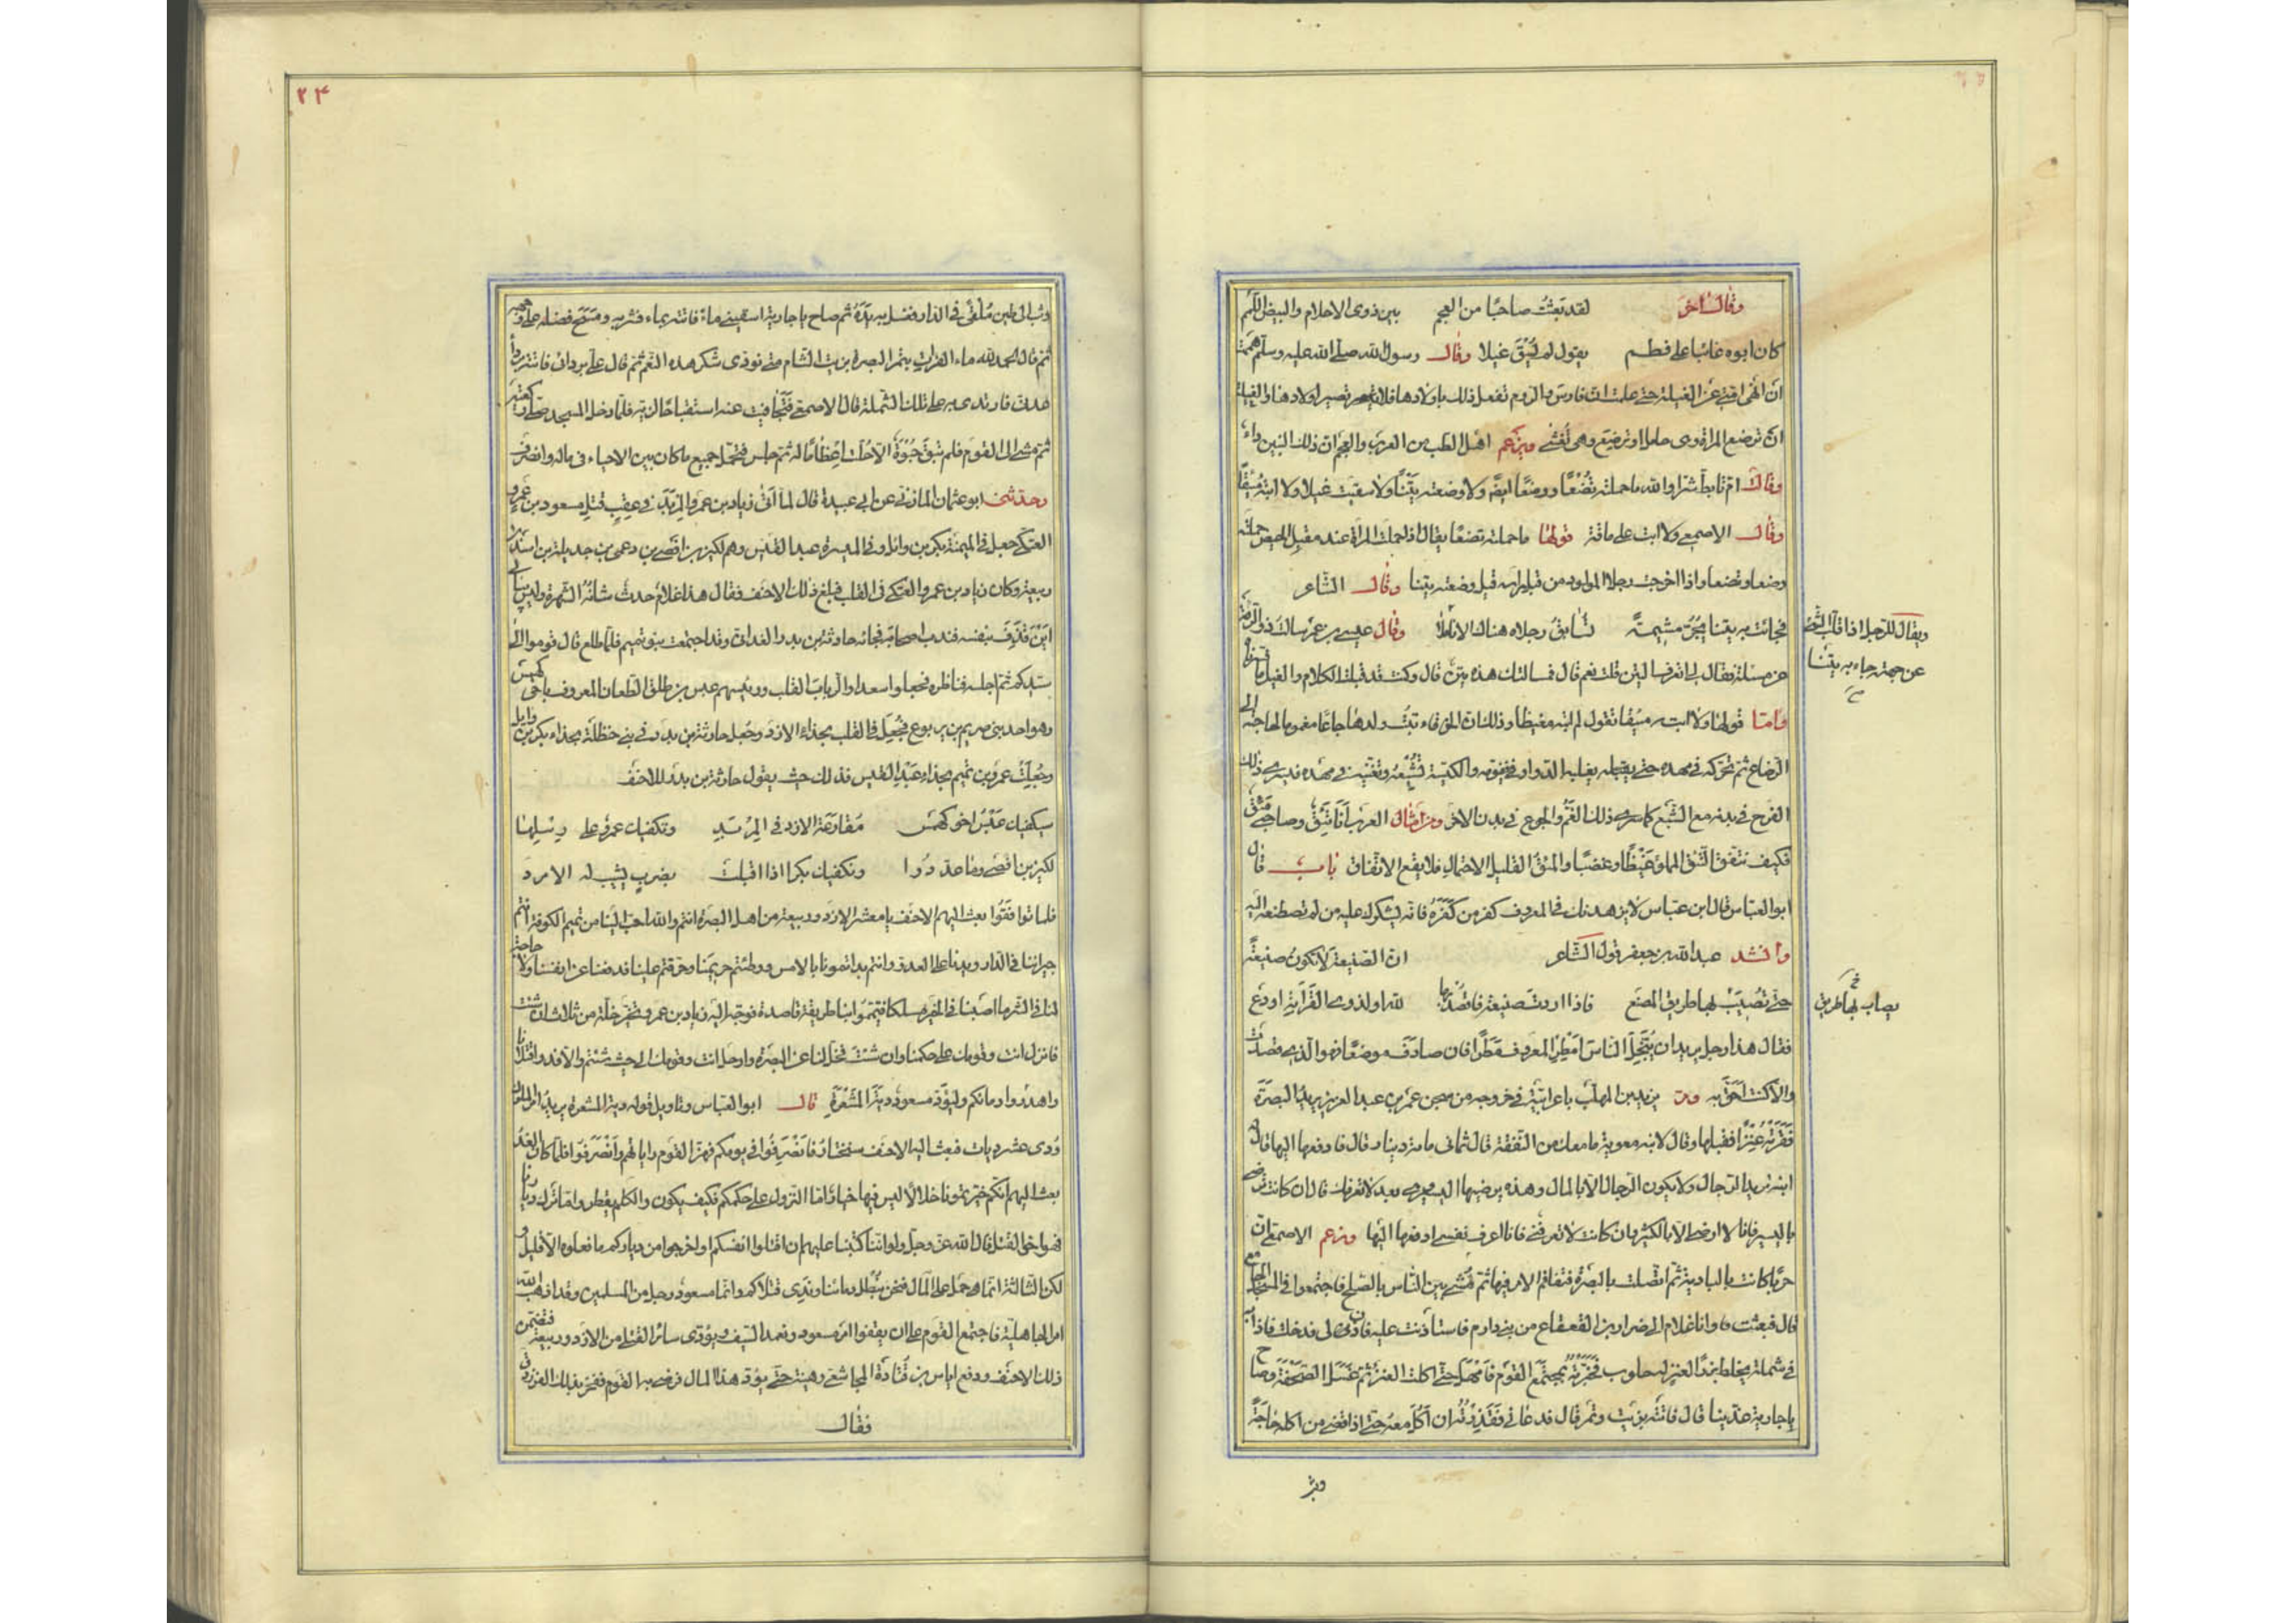 وقال آخر لقد بعثت صاحبًا من العجم بين ذوى الاحلام والبيض اللمم
كان ابوه غائبا على فطم يقول لم يُسْقَ غيلا وقال رسول الله صلى الله عليه وسلم هممت
ان انهى امتى عن الغيلة حتى علمت ان فارس والروم تفعل ذلك باولادها فلا تضير اولادها والغيلة
ان ترضع المراة وهى حامل او ترضع وهى تُغشى ويزعم اهل الطب من العرب والعجم ان ذلك اللبن داء
وقالت ام تابط شرا والله ما حملته تُضْعًا ووضعًا ايضا ولا وضعته يَتْنًا ولا سقيته غيلا ولا ابته مَئِقًا
وقال الاصمعى ولا ابت على ماقة قولها ما حملته تضعًا يقال اذا حملت المراة عند مقبل الحيض حملته
وضعا وتضعا واذا اخرجت رجلا المولود من قبل راسه قيل وضعته يتنا وقال الشاعر
فجائت به يتنا يجر مشيمة تسابق رجلاه هناك الانامل وقال عيسى بن عمر سالت ذو الرمة
عن مسئلة فقال لى اتعرف اليتن قلت نعم قال فمسالتك هذه يتن قال وكنت قد قلبت الكلام والغيل ما
واما قولها ولا ابته مئقا تقول لم ابته مغيظا وذلك ان الخرقاء تبيت ولدها جائعا مغموما لحاجته الى
الرضاع ثم تحركه فى مهده حتى يغلبه الدوار فينومه والكيسة تُشْبِعُه وتغنيه فى مهده فيسرى ذلك
الفرح فى بدنه مع الشبع كما سرى ذلك الغم والجوع فى بدن الاخر ومن امثال العرب أنا تئق وصاحبى مئق
فكيف نتفق التئق المملو غيظًا وغضبًا والمئق القليل الاحتمال فلا يقع الاتفاق باب قال
ابو العباس قال ابن عباس لا يزهدنك فى المعروف كفر من كفره فانه يشكرك عليه من لم تصطنعه اليه
وانشد عبد الله بن جعفر قول الشاعر ان الصنيعة لا تكون صنيعة
حتى تُصيب لها طريق المصنع فاذا اردت صنيعة فاقصد بها لله او لذوى القرابة او دع
فقال هذا رجل يريد ان يُبَخِّل الناس امطر المعروف مطرًا فان صادف موضعًا فهو الذى قصدت
والا كنت احق به ومر يزيد بن المهلب باعرابية فى خروجه من سجن عمر بن عبد العزيز يريد البصرة
فقرته عنزًا فقبلها وقال لابنه معوية ما معك من النفقة قال ثمانى مائة دينار قال فادفعها اليها قال له
ابنه تريد الرجال ولا يكون الرجال الا بالمال وهذه يرضيها اليسير وهى بعد لا تعرفك قال ان كانت ترضى
باليسير فانا لا ارضى الا بالكثير وان كانت لا تعرفنى فانا اعرف نفسى ادفعها اليها وزعم الاصمعى ان
حربًا كانت بالبادية ثم اتصلت بالبصرة فتفاقم الامر فيها ثم مُشى بين الناس بالصلح فاجتمعوا فى المسجد الجامع
قال فبعثت وانا غلام الى ضرار بن القعقاع من بنى دارم فاستاذنت عليه فاذن لى فدخلت فاذا به
فى شملة يخلط بزرًا لعنز له حلوب فخبرته بمجتمع القوم فامهل حتى اكلت العنز ثم غسل الصحفة وصاح
يا جارية غدينا قال فاتته بزيت وتمر قال فدعانى فقذرته ان آكل معه حتى اذا قضى من اكله حاجة
وثب
ويقال للرجل اذا قلب الشئ
عن جهته جاء به يتنا
يصاب بها طريق
٢٤
وثب الى طين مُلقى فى الدار فغسل به يده ثم صاح يا جارية اسقينى ماء فاتته بماء فشربه ومسح فضله على وجهه
ثم قال الحمد لله ماء الفرات بتمر البصرة بزيت الشام متى نودى شكر هذه النعم ثم قال على بردائى فاتته برداء
عدنى فارتدى به على تلك الشملة قال الاصمعى فتجافيت عنه استقباحًا لزيه فلما دخل المسجد صلى ركعتين
ثم مشى الى القوم فلم تبق حبوة الا حلت اعظامًا له ثم جلس فتحمل جميع ما كان بين الاحياء فى ماله وانصرف
وحدثنى ابو عثمان المازنى عن ابى عبيدة قال لما اتى زياد بن عمرو المربد فى عقب قتل مسعود بن عمرو
العتكى جعل فى الميمنة بكر بن وائل وفى الميسرة عبد القيس وهم لكيز بن افصى بن دعمى بن جديلة بن اسد بن
ربيعة وكان زياد بن عمرو العتكى فى القلب فبلغ ذلك الاحنف فقال هذا غلام حدث شانه الشهرة وليس يبالى
اين قذف بنفسه فندب اصحابه فجائه حارثة بن بدر الغدانى وقد اجتمعت بنو تميم فلما طلع قال قوموا الى
سيدكم ثم اجلسه فناظره فجعلوا سعدا والرباب القلب ورئيسهم عبس بن طلق الطعان المعروف باخى كهمس
وهو احد بنى صريم بن يربوع فجُعل فى القلب بحذاء الازد وجُعل حارثة بن بدر فى بنى حنظلة بحذاء بكر بن وايل
وجُعلت عمرو بن تميم بحذاء عبد القيس فذلك حيث يقول حارثة بن بدر للاحنف
سيكفيك عبس اخو كهمس مقارعة الازد فى المربد وتكفيك عمرو على رسلها
لكيز بن افصى وما عددوا وتكفيك بكرا اذا اقبلت بضرب يشيب له الامرد
فلما تواقفوا بعث اليهم الاحنف يا معشر الازد وربيعة من اهل البصرة انتم والله احب الينا من تميم الكوفة انتم
جيراننا فى الدار ويدنا على العدو وانتم بداتمونا بالامس ووطئتم حريمنا وحرقتم علينا فدفعنا عن انفسنا ولا حاجة
لنا فى الشر ما اصبنا فى الخير مسلكا فتيمموا بنا طريقة قاصدة فوجه اليه زياد بن عمرو تخير خلة من ثلاث ان شئت
فانزل انت وقومك على حكمنا وان شئت فخل لنا عن البصرة وارحل انت وقومك الى حيث شئتم والا فدوا قتلانا
واهدروا دمائكم وليؤد مسعود دية المشعرة قال ابو العباس وتاويل قوله دية المشعرة يريد امر الملوك
ودى عشر ديات فبعث اليه الاحنف سنختار فانصرفوا فى يومكم فهز القوم راياتهم وانصرفوا فلما كان الغد
بعث اليهم انكم خيرتمونا خلالا ليس فيها خيار اما النزول على حكمكم فكيف يكون والكلم يقطر واما ترك ديارنا
فهو اخو القتل قال الله عز وجل ولو انا كتبنا عليهم ان اقتلوا انفسكم او اخرجوا من دياركم ما فعلوه الا قليل و
لكن الثالثة انما هى حمل على المال فنحن نبطل دمائنا وندى قتلاكم وانما مسعود رجل من المسلمين وقد اذهب الله
امر الجاهلية فاجتمع القوم على ان يقفوا امر مسعود ويغمد السيف ويؤدى سائر القتلى من الازد وربيعة فضمن
ذلك الاحنف ودفع اياس بن قتادة المجاشعى رهينة حتى يؤد هذا المال فرضى به القوم ففخر بذلك الفرزدق
فقال